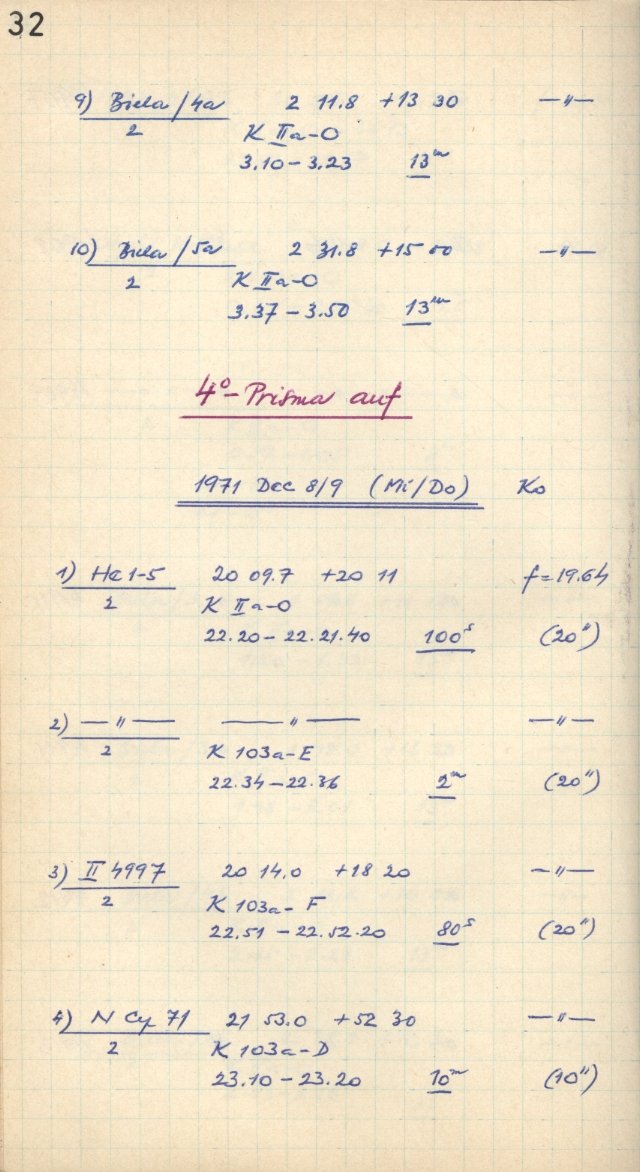 32
9) Biela/4a 2 11.8 +13 30 —〃—
2 K IIa-O
3.10 – 3.23 13ᵐ
10) Biela/5a 2 31.8 +15 00 —〃—
2 K IIa-O
3.37 – 3.50 13ᵐ
4°-Prisma auf
1971 Dec 8/9 (Mi/Do) Ko
1) Ha 1-5 20 09.7 +20 11 f=19.64
2 K IIa-O
22.20 – 22.21.40 100ˢ (20")
2) —〃— —〃— —〃—
2 K 103a-E
22.34 – 22.36 2ᵐ (20")
3) II 4997 20 14.0 +18 20 —〃—
2 K 103a-F
22.51 – 22.52.20 80ˢ (20")
4) N Cy 71 21 53.0 +52 30 —〃—
2 K 103a-D
23.10 – 23.20 10ᵐ (10")